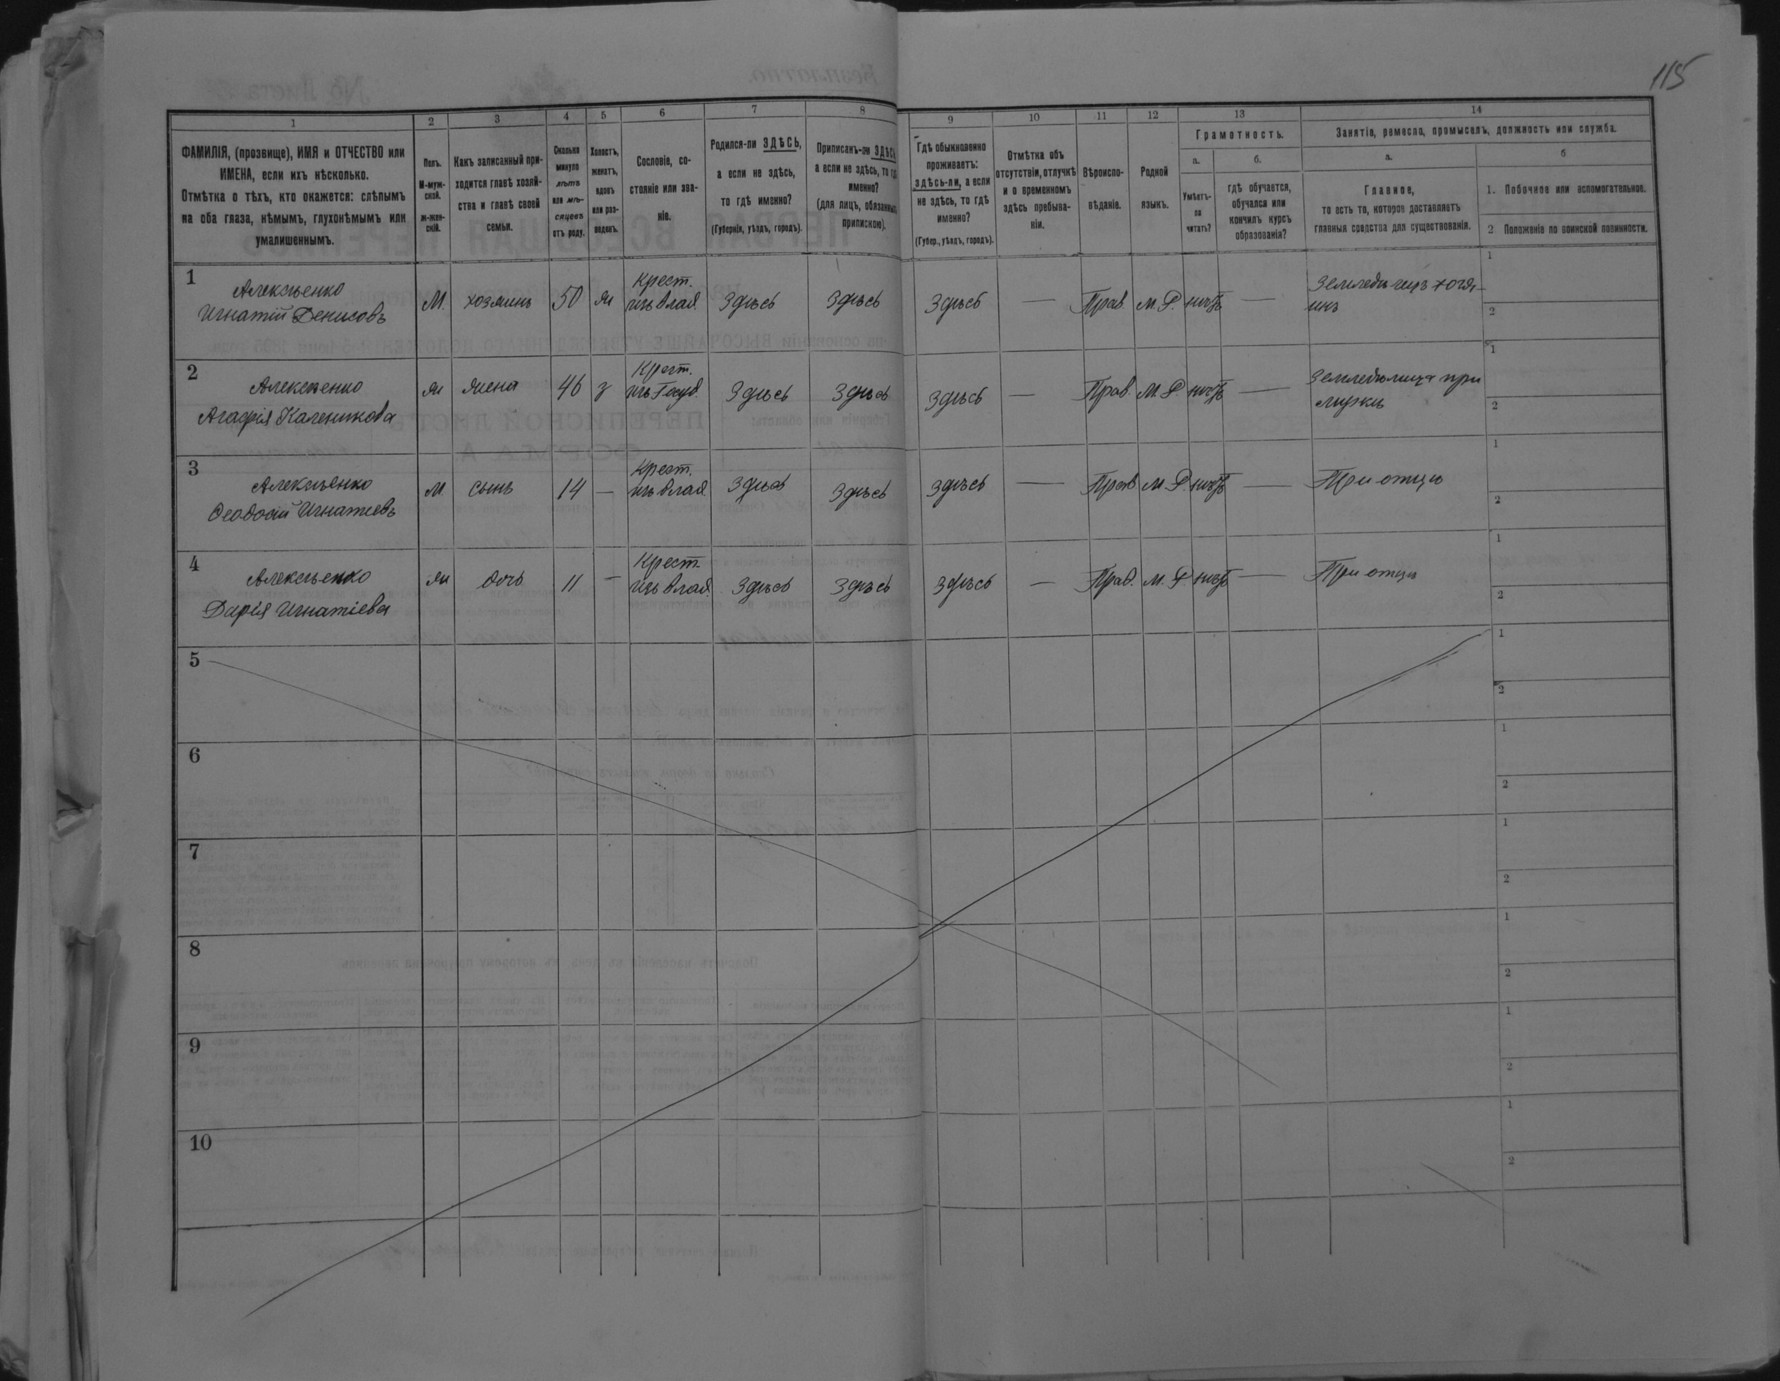 115
1
2
3
4
5
6
7
8
9
10
11
12
13
14
ФАМИЛІЯ, (прозвище), ИМЯ и ОТЧЕСТВО или
ИМЕНА, если ихъ нѣсколько.
Отмѣтка о тѣхъ, кто окажется: слѣпымъ
на оба глаза, нѣмымъ, глухонѣмымъ или
умалишеннымъ.
Полъ.
М-муж-
ской.
ж-жен-
скій.
Какъ записанный при-
ходится главѣ хозяй-
ства и главѣ своей
семьи.
Сколько
минуло
лѣтъ
или мѣ-
сяцевъ
отъ роду.
Холостъ,
женатъ,
вдовъ
или раз-
веденъ.
Сословіе, со-
стояніе или зва-
ніе.
Родился-ли ЗДѢСЬ,
а если не здѣсь,
то гдѣ именно?
(Губернія, уѣздъ, городъ).
Приписанъ-ли ЗДѢСЬ
а если не здѣсь, то гдѣ
именно?
(для лицъ, обязанныхъ
припискою).
Гдѣ обыкновенно
проживаетъ:
здѣсь-ли, а если
не здѣсь, то гдѣ
именно?
(Губер., уѣздъ, городъ).
Отмѣтка объ
отсутствіи, отлучкѣ
и о временномъ
здѣсь пребыва-
ніи.
Вѣроиспо-
вѣданіе.
Родной
языкъ.
Грамотность.
а.
б.
Умѣетъ-
ли
читать?
гдѣ обучается,
обучался или
кончилъ курсъ
образованія?
Занятіе, ремесло, промыселъ, должность или служба.
а.
б
Главное,
то есть то, которое доставляетъ
главныя средства для существованія.
1. Побочное или вспомогательное.
2 Положеніе по воинской повинности.
1
Алексѣенко
Игнатій Денисовъ
М. хозяинъ 50 ж
Крест.
изъ влад.
Здѣсь Здѣсь Здѣсь — Прав. М.Р. нѣтъ —
Земледѣлецъ хозя-
инъ
1
2
2
Алексѣенко
Агафія Каленикова
ж жена 46 з
Крест.
изъ Госуд.
Здѣсь Здѣсь Здѣсь — Прав. М.Р. нѣтъ —
Земледѣлица при
мужѣ
1
2
3
Алексѣенко
Феодосій Игнатіевъ
М. сынъ 14 —
Крест.
изъ влад.
Здѣсь Здѣсь Здѣсь — Прав. М.Р. нѣтъ —
При отцѣ
1
2
4
Алексѣенко
Дарія Игнатіева
ж дочь 11 —
Крест.
изъ влад.
Здѣсь Здѣсь Здѣсь — Прав. М.Р. нѣтъ —
При отцѣ
1
2
5
1
2
6
1
2
7
1
2
8
1
2
9
1
2
10
1
2